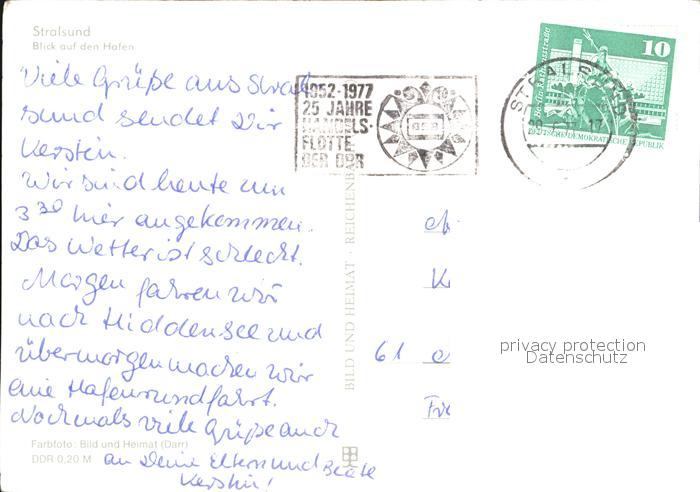 Stralsund
Blick auf den Hafen
Viele Grüße aus Stral
sund sendet Dir
Kerstin.
Wir sind heute um
3 30 hier angekommen.
Das Wetter ist schlecht.
Morgen fahren wir
nach Hiddensee und
übermorgen machen wir
eine Hafenrundfahrt.
Nochmals viele Grüße auch
an Deine Eltern und Beate
Kerstin!
Farbfoto: Bild und Heimat (Darr)
DDR 0,20 M
1952-1977
25 JAHRE
HANDELS-
FLOTTE
DER DDR
BILD UND HEIMAT · REICHENB
10
DEUTSCHE DEMOKRATISCHE REPUBLIK
STRALSUND
61
privacy protection
Datenschutz